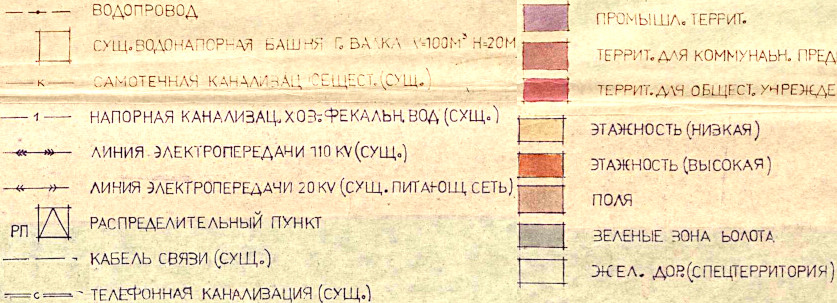 ВОДОПРОВОД
СУЩ. ВОДОНАПОРНАЯ БАШНЯ Г. ВАЛКА V=100М³ Н=20М
К
САМОТЕЧНАЯ КАНАЛИЗАЦ. СЕЩЕСТ. (СУЩ.)
1
НАПОРНАЯ КАНАЛИЗАЦ. ХОЗ-ФЕКАЛЬН. ВОД (СУЩ.)
ЛИНИЯ ЭЛЕКТРОПЕРЕДАЧИ 110 KV (СУЩ.)
ЛИНИЯ ЭЛЕКТРОПЕРЕДАЧИ 20 KV (СУЩ. ПИТАЮЩ. СЕТЬ)
РП
РАСПРЕДЕЛИТЕЛЬНЫЙ ПУНКТ
КАБЕЛЬ СВЯЗИ (СУЩ.)
С
ТЕЛЕФОННАЯ КАНАЛИЗАЦИЯ (СУЩ.)
ПРОМЫШЛ. ТЕРРИТ.
ТЕРРИТ. ДЛЯ КОММУНАЬН. ПРЕД
ТЕРРИТ. ДЛЯ ОБЩЕСТ. УЧРЕЖДЕ
ЭТАЖНОСТЬ (НИЗКАЯ)
ЭТАЖНОСТЬ (ВЫСОКАЯ)
ПОЛЯ
ЗЕЛЕНЫЕ ЗОНА БОЛОТА
ЖЕЛ. ДОР. (СПЕЦТЕРРИТОРИЯ)